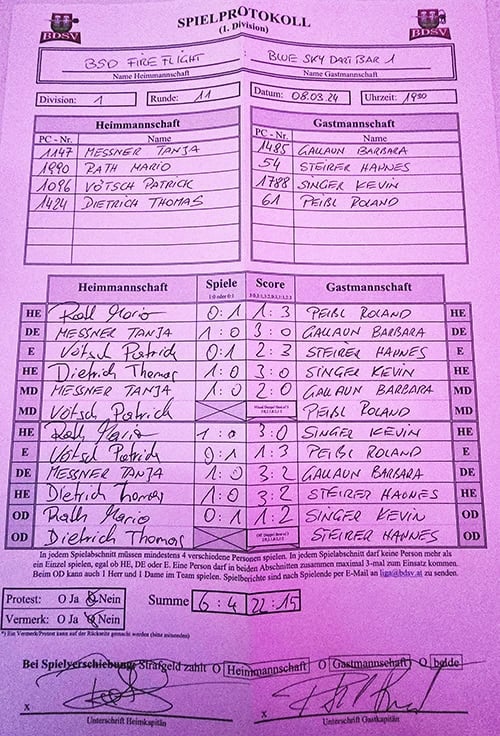 BDSV SPIELPROTOKOLL BDSV
(1. Division)
BSD FIRE FLIGHT BLUE SKY DARTBAR 1
Name Heimmannschaft Name Gastmannschaft
Division: 1 Runde: 11 Datum: 08.03.24 Uhrzeit: 19³⁰
Heimmannschaft Gastmannschaft
PC - Nr. Name PC - Nr. Name
1147 MESSNER TANJA 1485 GALLAUN BARBARA
1990 RATH MARIO 54 STEIRER HANNES
1096 VÖTSCH PATRICK 1788 SINGER KEVIN
1424 DIETRICH THOMAS 61 PEIBL ROLAND
Heimmannschaft Spiele Score Gastmannschaft
1:0 oder 0:1
HE Rath Mario 0:1 1:3 PEIBL ROLAND HE
DE MESSNER TANJA 1:0 3:0 GALLAUN BARBARA DE
E Vötsch Patrich 0:1 2:3 STEIRER HANNES E
HE Dietrich Thomas 1:0 3:0 SINGER KEVIN HE
MD MESSNER TANJA 1:0 2:0 GALLAUN BARBARA MD
MD Vötsch Patrich PEIBL ROLAND MD
HE Rath Mario 1:0 3:0 SINGER KEVIN HE
E Vötsch Patrich 0:1 1:3 PEIBL ROLAND E
DE MESSNER TANJA 1:0 3:2 GALLAUN BARBARA DE
HE Dietrich Thomas 1:0 3:2 STEIRER HANNES HE
OD Rath Mario 0:1 1:2 SINGER KEVIN OD
OD Dietrich Thomas STEIRER HANNES OD
In jedem Spielabschnitt müssen mindestens 4 verschiedene Personen spielen. In jedem Spielabschnitt darf keine Person mehr als
ein Einzel spielen, egal ob HE, DE oder E. Eine Person darf in beiden Abschnitten zusammen maximal 3-mal zum Einsatz kommen.
Beim OD kann auch 1 Herr und 1 Dame im Team spielen. Spielberichte sind nach Spielende per E-Mail an liga@bdsv.at zu senden.
Protest: O Ja O Nein Summe 6:4 22:15
Vermerk: O Ja O Nein
*) Ein Vermerk/Protest kann auf der Rückseite gemacht werden (bitte ankreuzen)
Bei Spielverschiebung: Strafgeld zahlt O Heimmannschaft O Gastmannschaft O beide
x x
Unterschrift Heimkapitän Unterschrift Gastkapitän